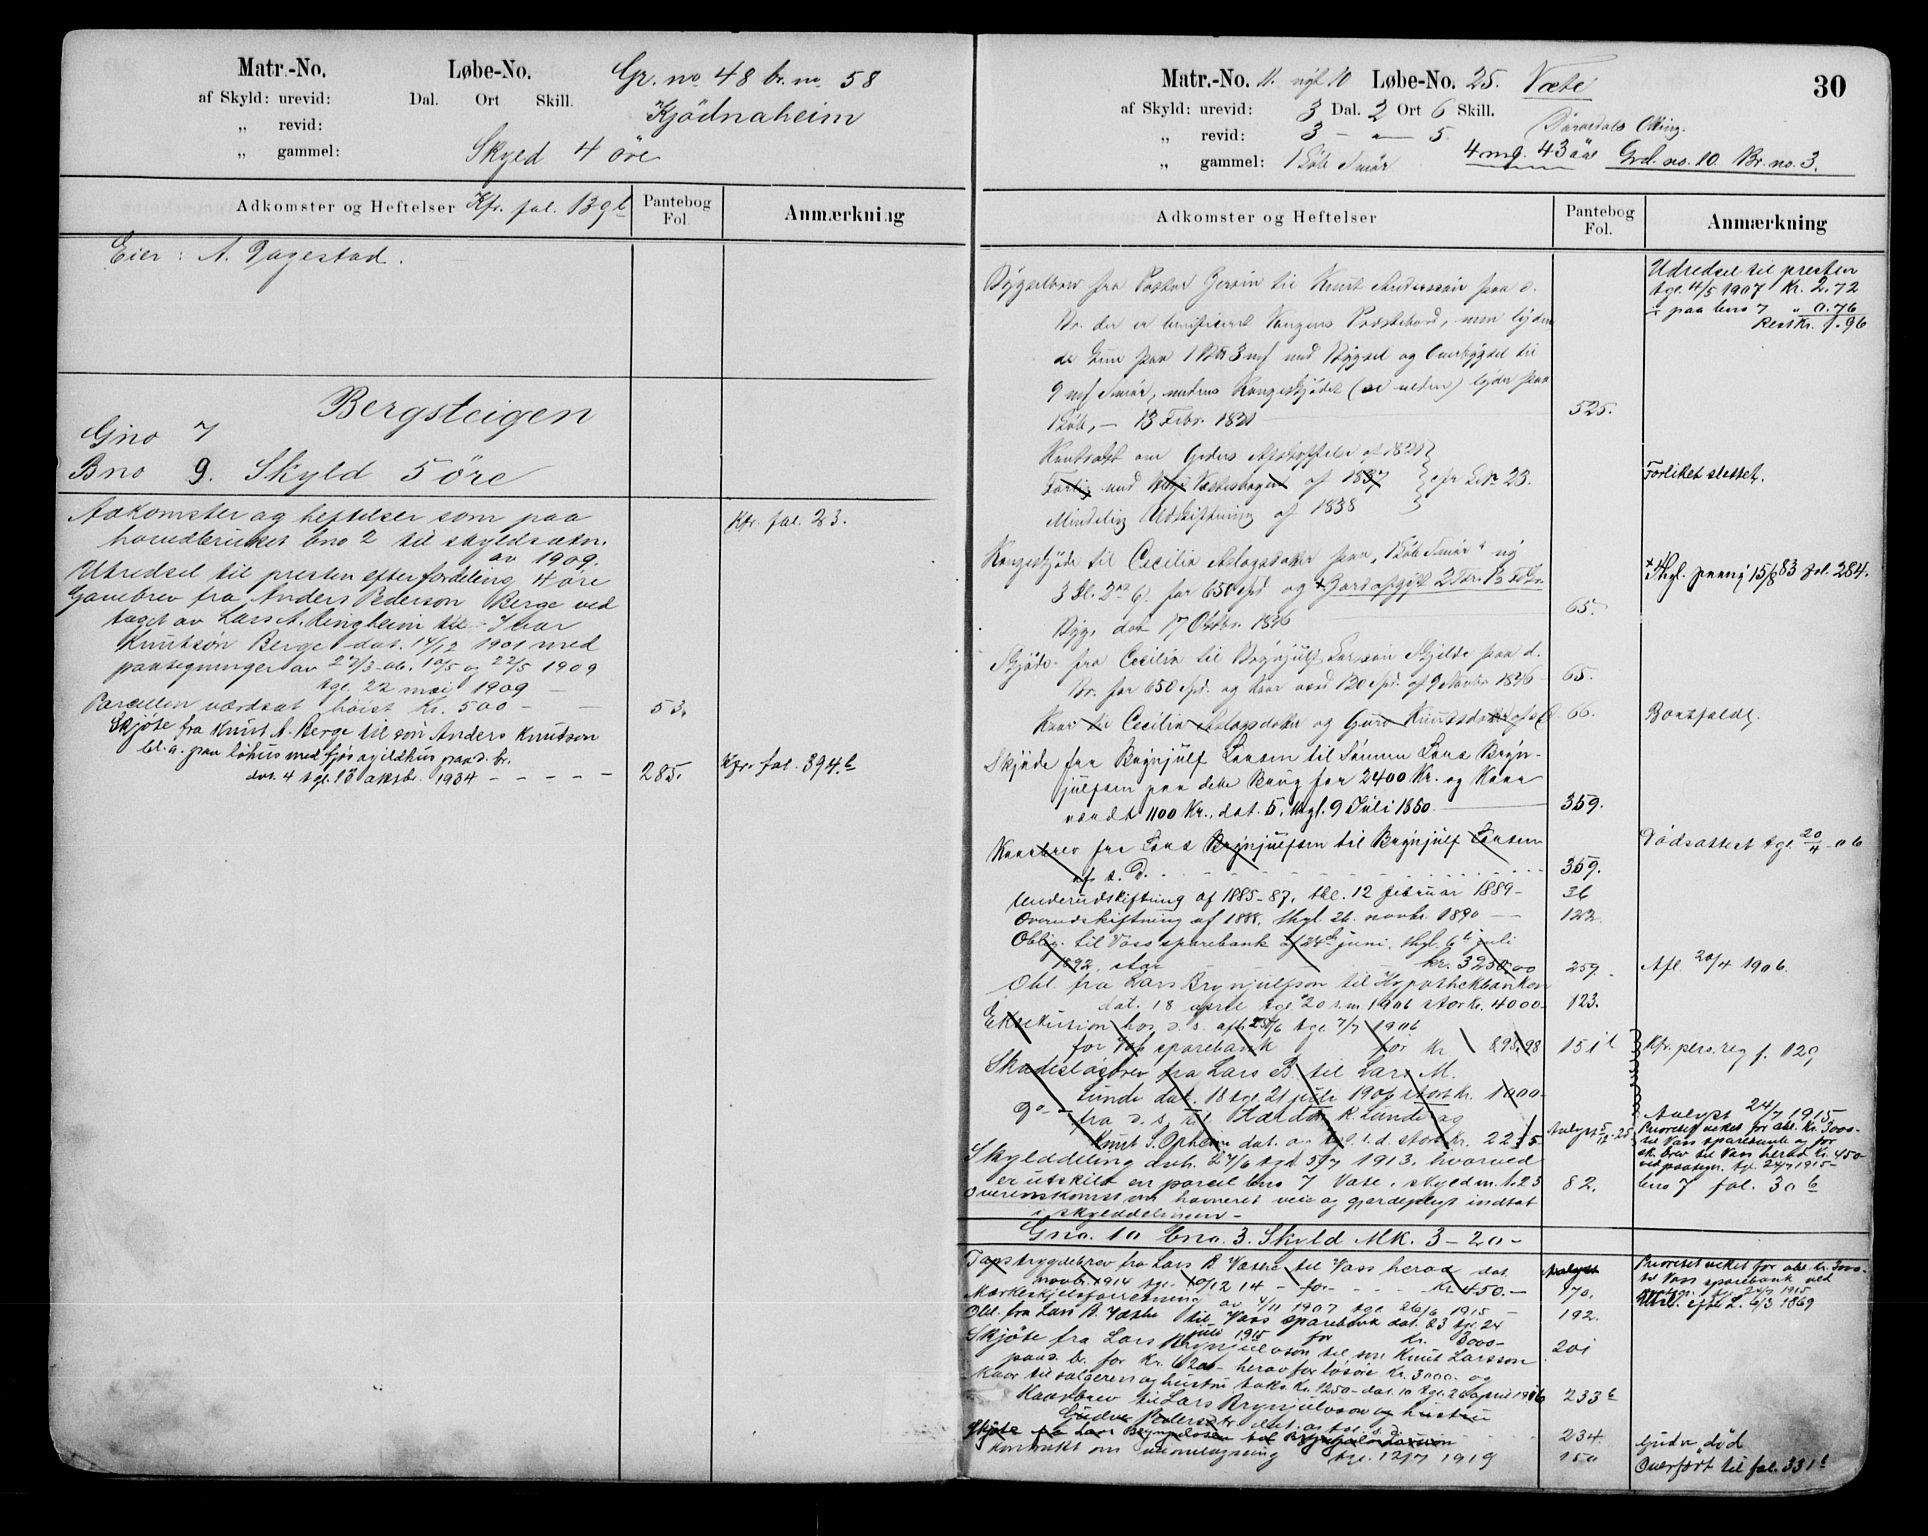 Matr.-No. Løbe-No. Gr. no 48 br. no. 58
af Skyld: urevid: Dal. Ort Skill. Kjödnaheim
„ revid:
„ gammel: Skyld 4 öre
Adkomster og Heftelser Kfr. fol. 139b
Pantebog Fol.
Anmærkning
Eier: A. Dagestad.
Bergsteigen
Gno 7
Bno 9. Skyld 5 öre
Adkomster og heftelser som paa
hovedbruket bno 2 til skyldsætn.
av 1909.
Kfr. fol. 23.
Utredsel til presten efter fordeling 4 öre
Gavebrev fra Anders Pederson Berge ved
taget av Lars A. Ringheim til Ivar
Knutsön Berge dat. 14/12 1901 med
paategninger av 27/3 ob. 10/5 og 22/5 1909
tgl. 22 mai 1909 —
Parcellen værdsat höist Kr. 500 — — 53.
Skjöte fra Knut A. Berge til sön Anders Knutson
bl. a. paa löhus med fjös og ildhus paa d. br.
dat. 4 tgl. 13 oktbr. 1934 - - - - - 285. Kfr. fol. 394b
30
Matr.-No. 11. nyt 10 Løbe-No. 25. Væte
af Skyld: urevid: 3 Dal. 2 Ort 6 Skill.
„ revid: 3 — „ — 5.
„ gammel: 1 Löb Smör 4 md. 43 öre Grd. no. 10 Br. no. 3.
Adkomster og Heftelser
Pantebog Fol.
Anmærkning
Bygselbrev fra Pastor Gerson til Knut Anderssön paa d.
Br. der er beneficeret Vangens Præstebord, men lyden
9 mk Smör, medens Kongeskjödet lyder paa
1 Löb, — 13 Febr. 1821 525.
Udredsel til presten
tgl. 4/5 1907 Kr. 2.72
÷ paa bno 7 „ 0.76
Rest Kr. 1.96
Kontrakt om af 1821
Forlig med af 1837 cfr LN 23.
Mindelig Udskiftning af 1838
Forliket slettet.
Kongeskjöde til Cecilia Aslagsdatter paa 1 Löb Smör og
3 Dl. 2 ort 6 ß. for 650 Spd og
Byg, dat 17 Oktbr. 1836 65.
fol. 284.
Skjöde fra Cecilia til Brynjulf Larssön Gjelde paa d.
Br. for 650 Spd. og Kaar værd 120 Spd. af 9 Novbr 1836 — 65.
Kaar til Cecilia Aslagsdatter og Guro Knutsdatter af s. D. 66. Bortfaldt.
Skjöde fra Brynjulf Larsen til Sönnen Lars Bryn-
julfsen paa dette Brug for 2400 Kr. og Kaar
værdt 1100 Kr., dat. 5, thgl. 9 Juli 1880 359.
Kaarbrev fra Lars Brynjulfsen til Brynjulf Larsen
af s. D. 359.
Dödsattest tgl. 20/4 - 06
Underudskiftning af 1885-87, thl. 12 februar 1889 - 36
Overudskiftning af 1888, thgl. 26. novbr. 1890 — 122.
Oblig. til Voss sparebank af 24de juni, thgl. 6te juli
1892, stor kr. 3250.00 259. Afl. 20/4 1906.
Obl. fra Lars Brynjulfson til Hypothekbanken
dat. 18 april tgl. 20 s.m. 1906 stor kr. 4000- 123.
Eksekution hos d. s. afh. 25/6 tgl. 7/7 1906
for Voss sparebank for kr 898.98 151b Kfr. pers. reg f. 129
Skadeslösbrev fra Lars B. til Lars M.
Lunde dat. 18 tgl. 21 juli 1906 stort kr. 1000-
Do — fra d. s. til Haldor K. Lunde og
Knut S. Opheim dat. og tgl. s. d. stort kr.
Avlyst 24/7 1915
Prioritet veket for obl. kr. 3000-
til Voss sparebank og for
sk. brev til Voss herad kr. 450
ved paategn. tgl. 24/7 1915 -
Skylddeling avh. 27/6 tgl. 5/7 1913, hvorved
er utskilt en parcel bno 7 Væte, skyld m. 1.23 82. bno 7 fol. 30b
Overenskomst om havneret veie og gjerdepligt indtat
i skylddelingen —
Gno. 10 bno. 3. Skyld Mk. 3-20-
Tapstrygdebrev fra Lars B. Væte til Voss herad dat.
novbr. 1914 tgl. 10/12 14 - for - - kr 450.- Avlyst 170.
Prioritet veket for obl. kr. 3000-
til Voss sparebank ved
paategn. tgl. 24/7 1915
Merkeskjelsforretning av 4/11 1907 tgl. 26/6 1915 — 192. Utsl. efter L. 6/3 1869
Obl. fra Lars B. Væte til Voss sparebank dat. 23 tgl. 24
juli 1915 for Kr. 3000- 201
Skjöte fra Lars Brynjulvson til sön Knut Larsson
paa d. br. for Kr. 6200- herav for lösöre Kr. 3000. og
Kaar til sælgeren og hustru taks. Kr. 1250- dat. 10 tgl. 26 april 1916 233b
Kaarbrev til Lars Brynjulvson og hustru
Gudve Pedersdtr. dat. og tgl. s. d. 234. Gudve död
Skjöte fra Lars Brynjulvson til Brynjulv Larsson
Kontrakt om tgl. 12/7 1919 150 Overfört til fol. 331b